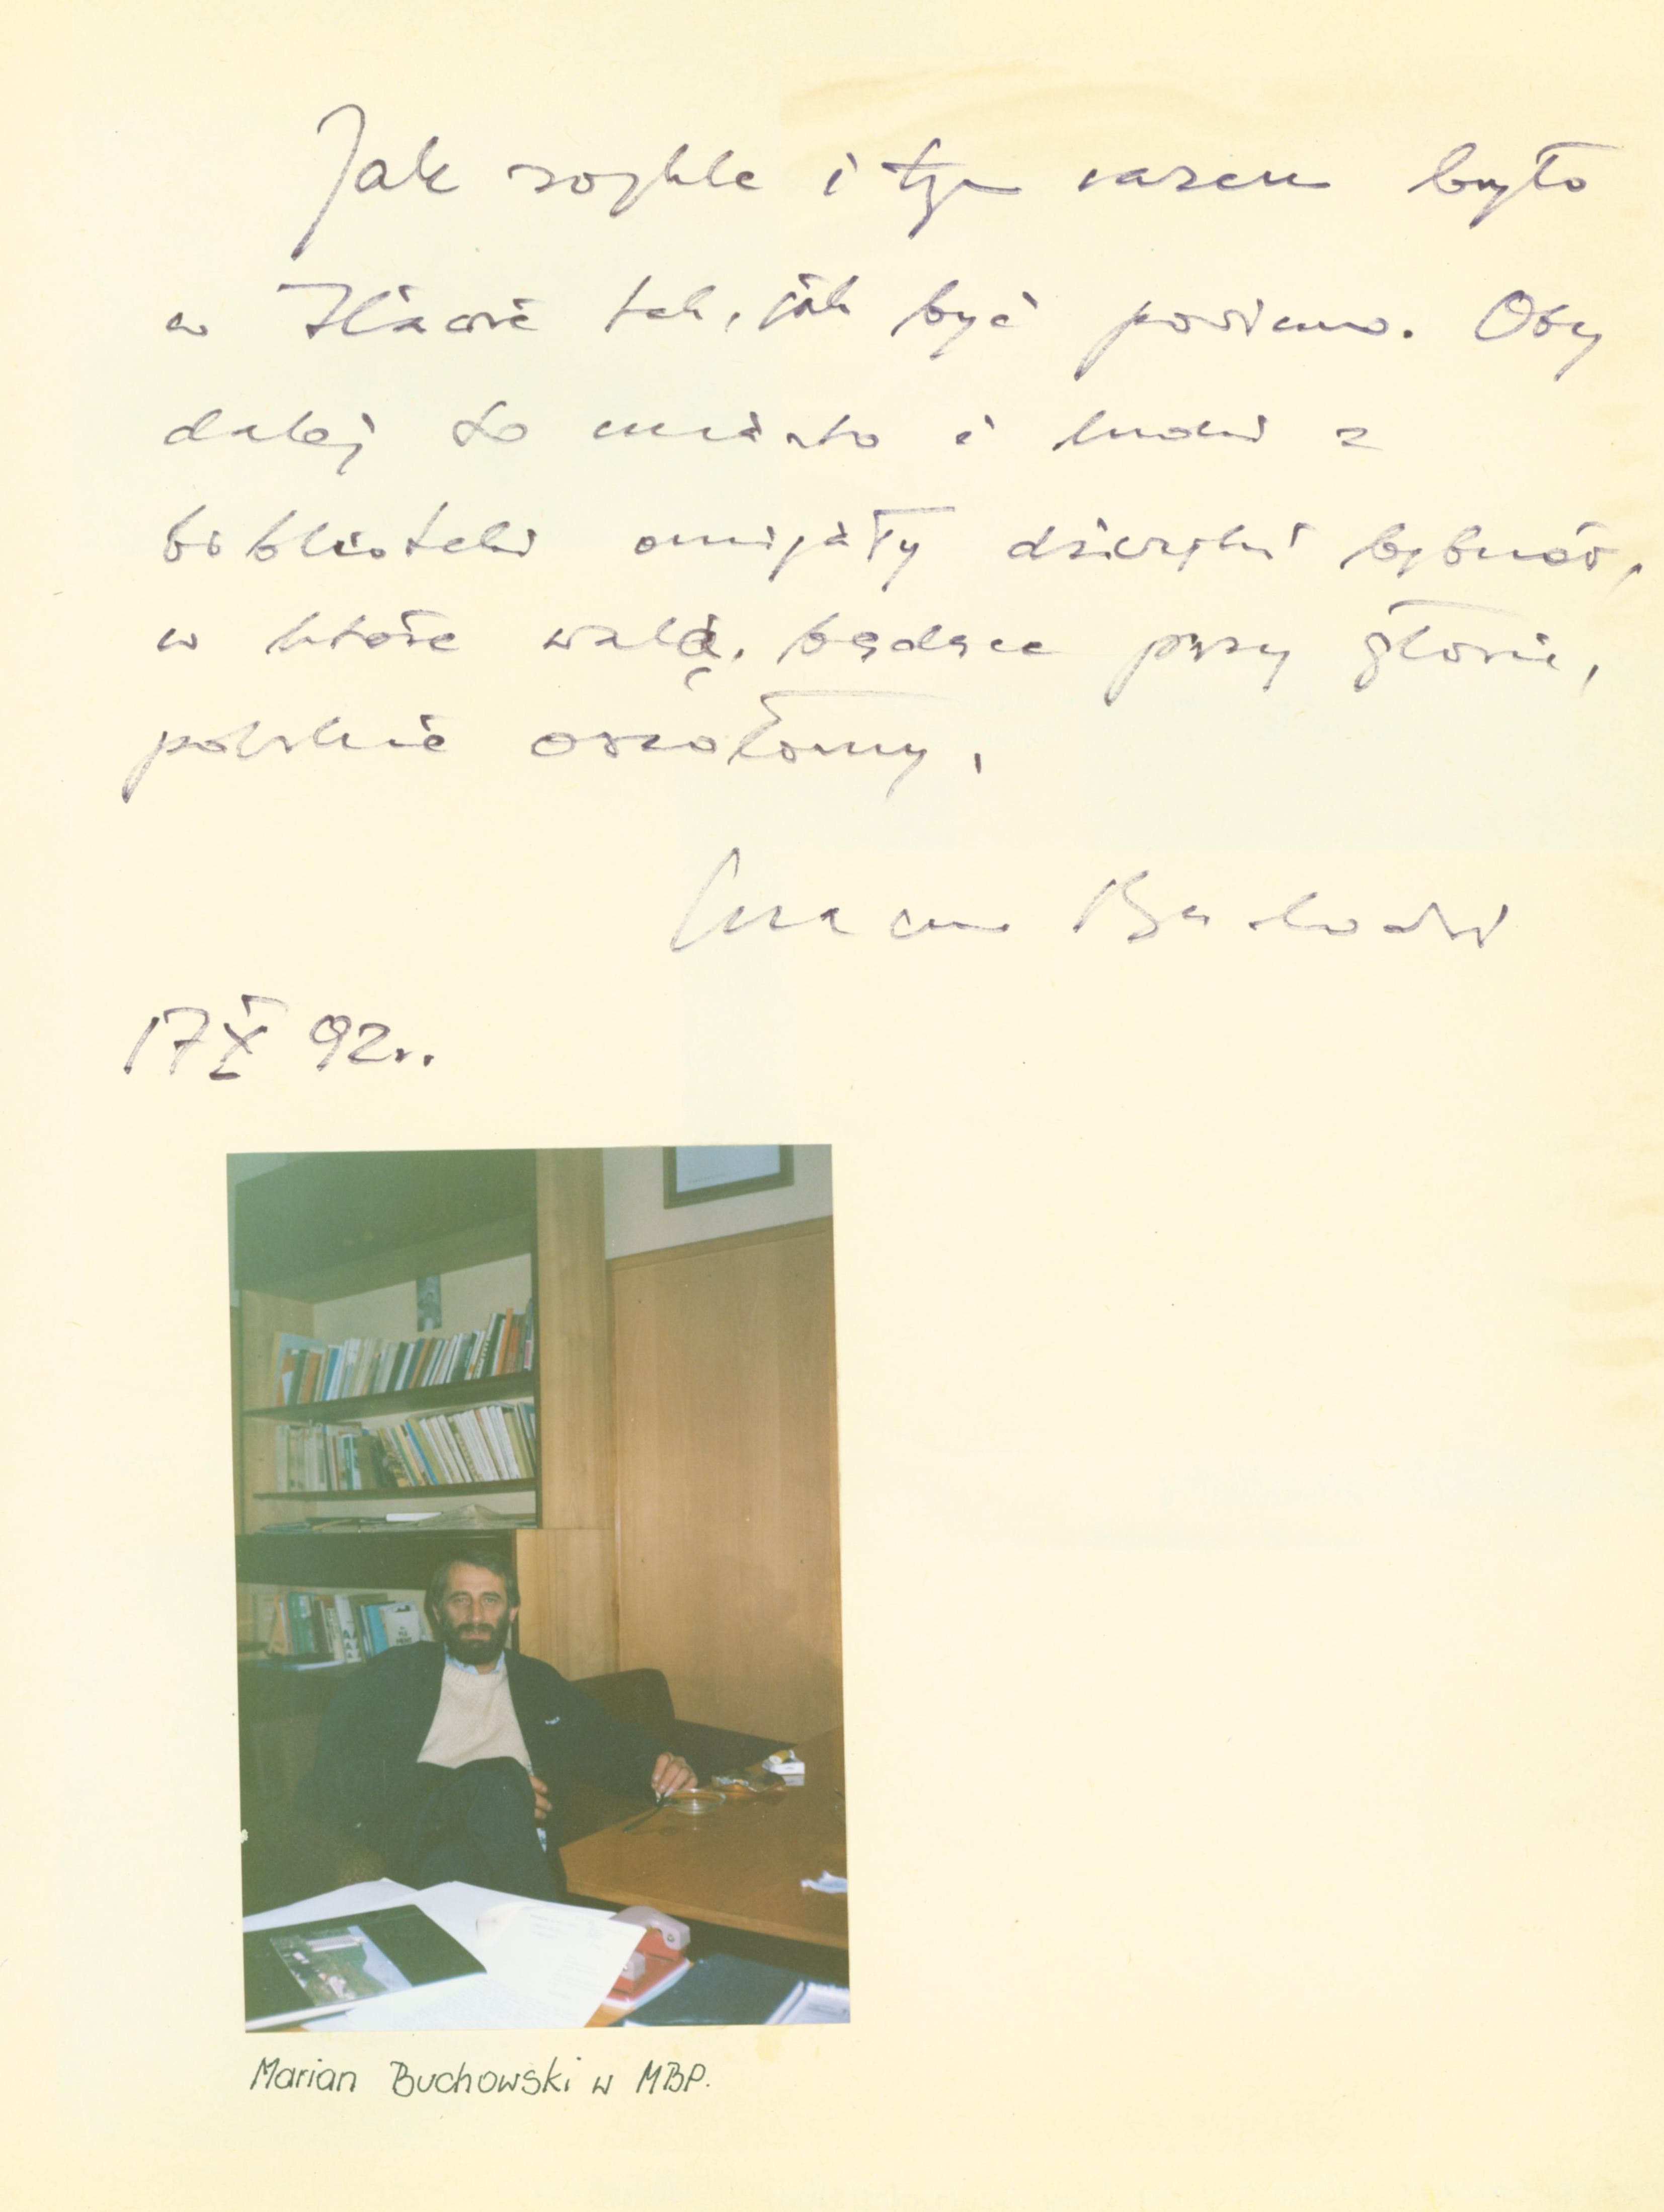 Jak zwykle i tym razem było
w Iławie tak, jak być powinno. Oby
dalej to miasto i ludzi z
biblioteki omijały dźwięki bębnów,
w które walą, będące przy głosie,
polskie oszołomy.
Marian Buchowski
17 X 92r.
Marian Buchowski w MBP.